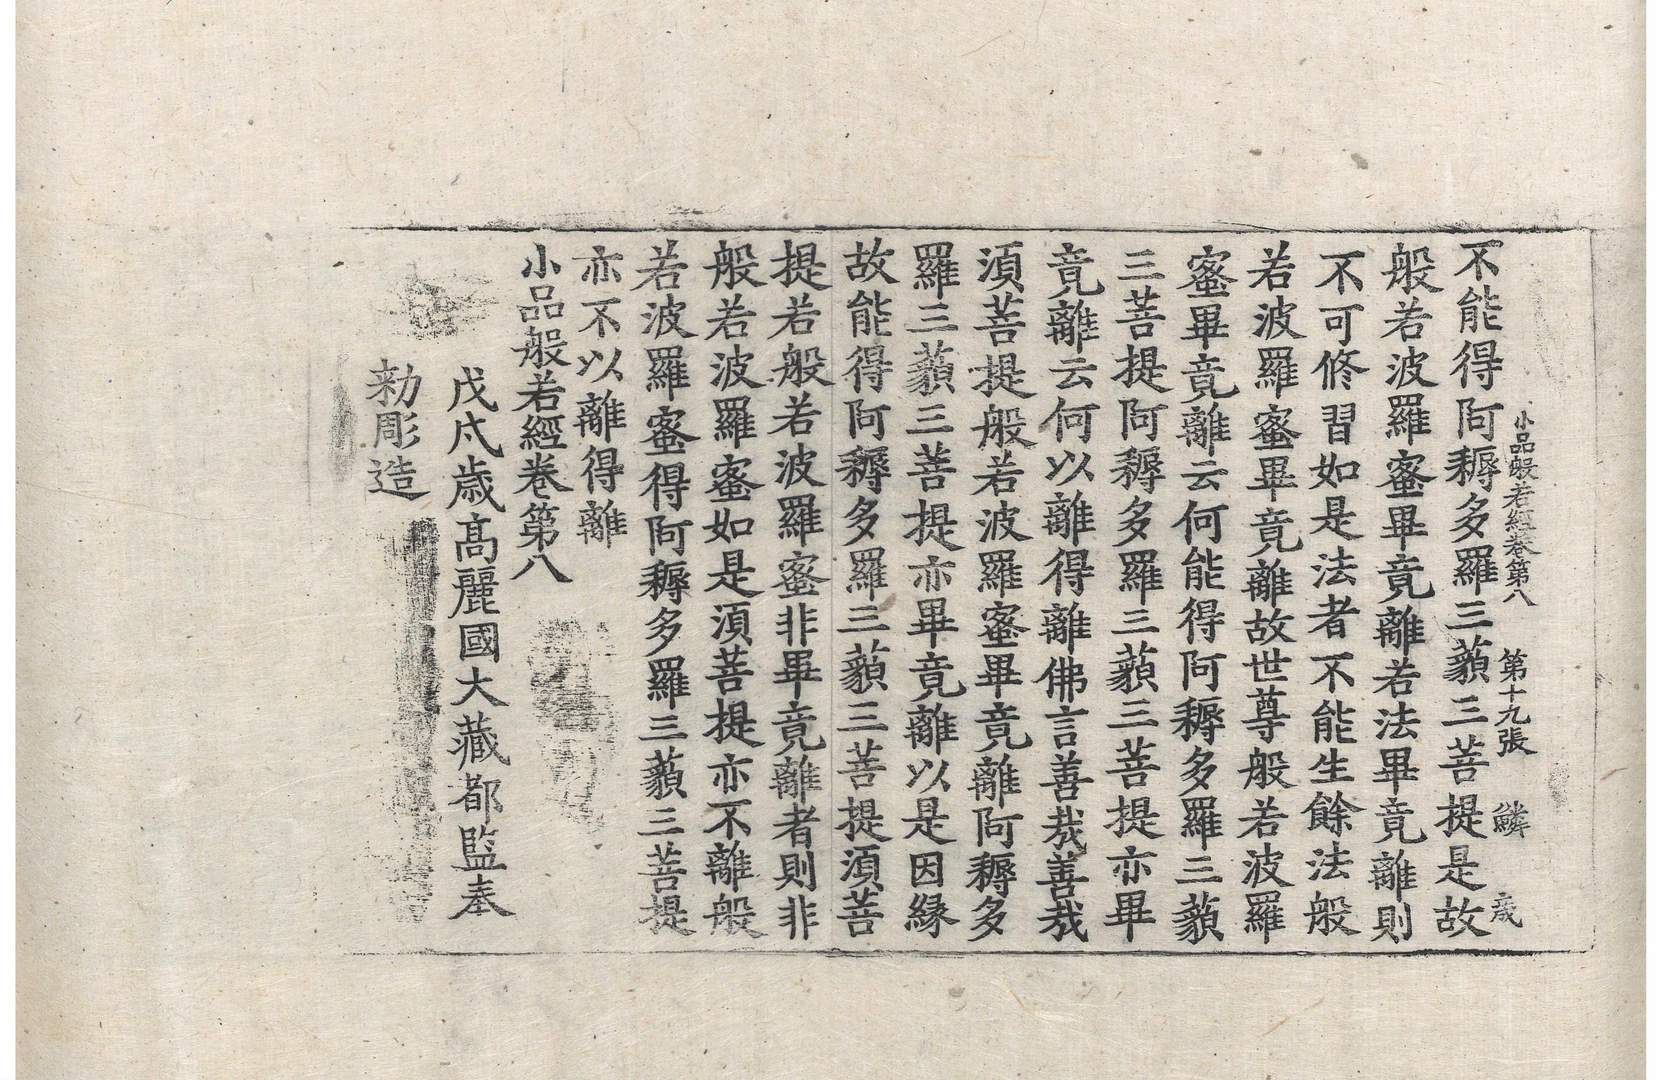 小品般若經卷第八 第十九張 鱗 歲
不能得阿耨多羅三藐三菩提是故
般若波羅蜜畢竟離若法畢竟離則
不可修習如是法者不能生餘法般
若波羅蜜畢竟離故世尊般若波羅
蜜畢竟離云何能得阿耨多羅三藐
三菩提阿耨多羅三藐三菩提亦畢
竟離云何以離得離佛言善哉善哉
須菩提般若波羅蜜畢竟離阿耨多
羅三藐三菩提亦畢竟離以是因緣
故能得阿耨多羅三藐三菩提須菩
提若般若波羅蜜非畢竟離者則非
般若波羅蜜如是須菩提亦不離般
若波羅蜜得阿耨多羅三藐三菩提
亦不以離得離
小品般若經卷第八
戊戌歲高麗國大藏都監奉
勅彫造